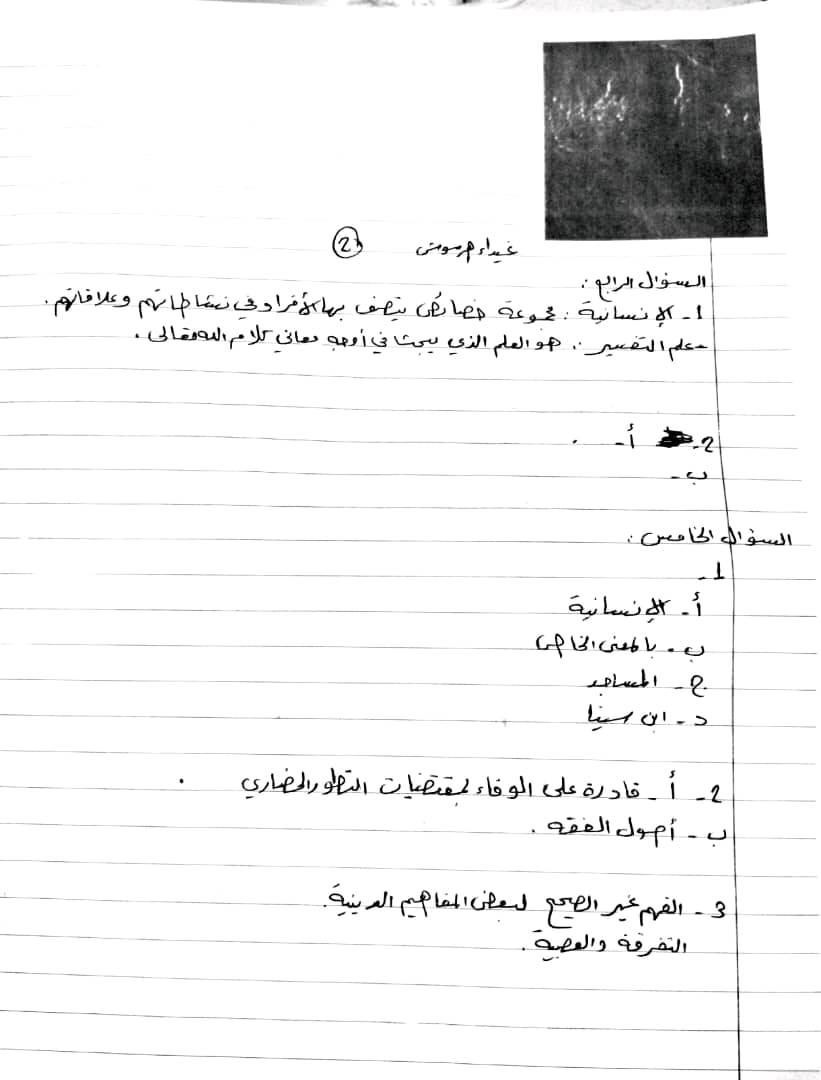 غيداء هرموش (2)
السؤال الرابع :
1- الإنسانية : مجموعة خصائص يتصف بها الأفراد في نشاطاتهم وعلاقاتهم .
- علم التفسير : هو العلم الذي يبحث في أوجه معاني كلام الله تعالى .
2- أ- .
ب-
السؤال الخامس :
1-
أ- الإنسانية
ب- بالمعنى الخاص
ج- المساجد
د- ابن سينا
2- أ- قادرة على الوفاء بمقتضيات التطور الحضاري .
ب- أصول الفقه .
3- الفهم غير الصحيح لبعض المفاهيم الدينية .
التفرقة والعصبية .